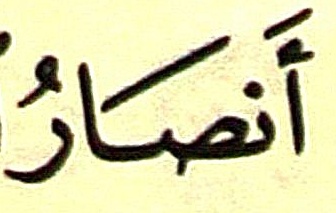 أَنصَارُ